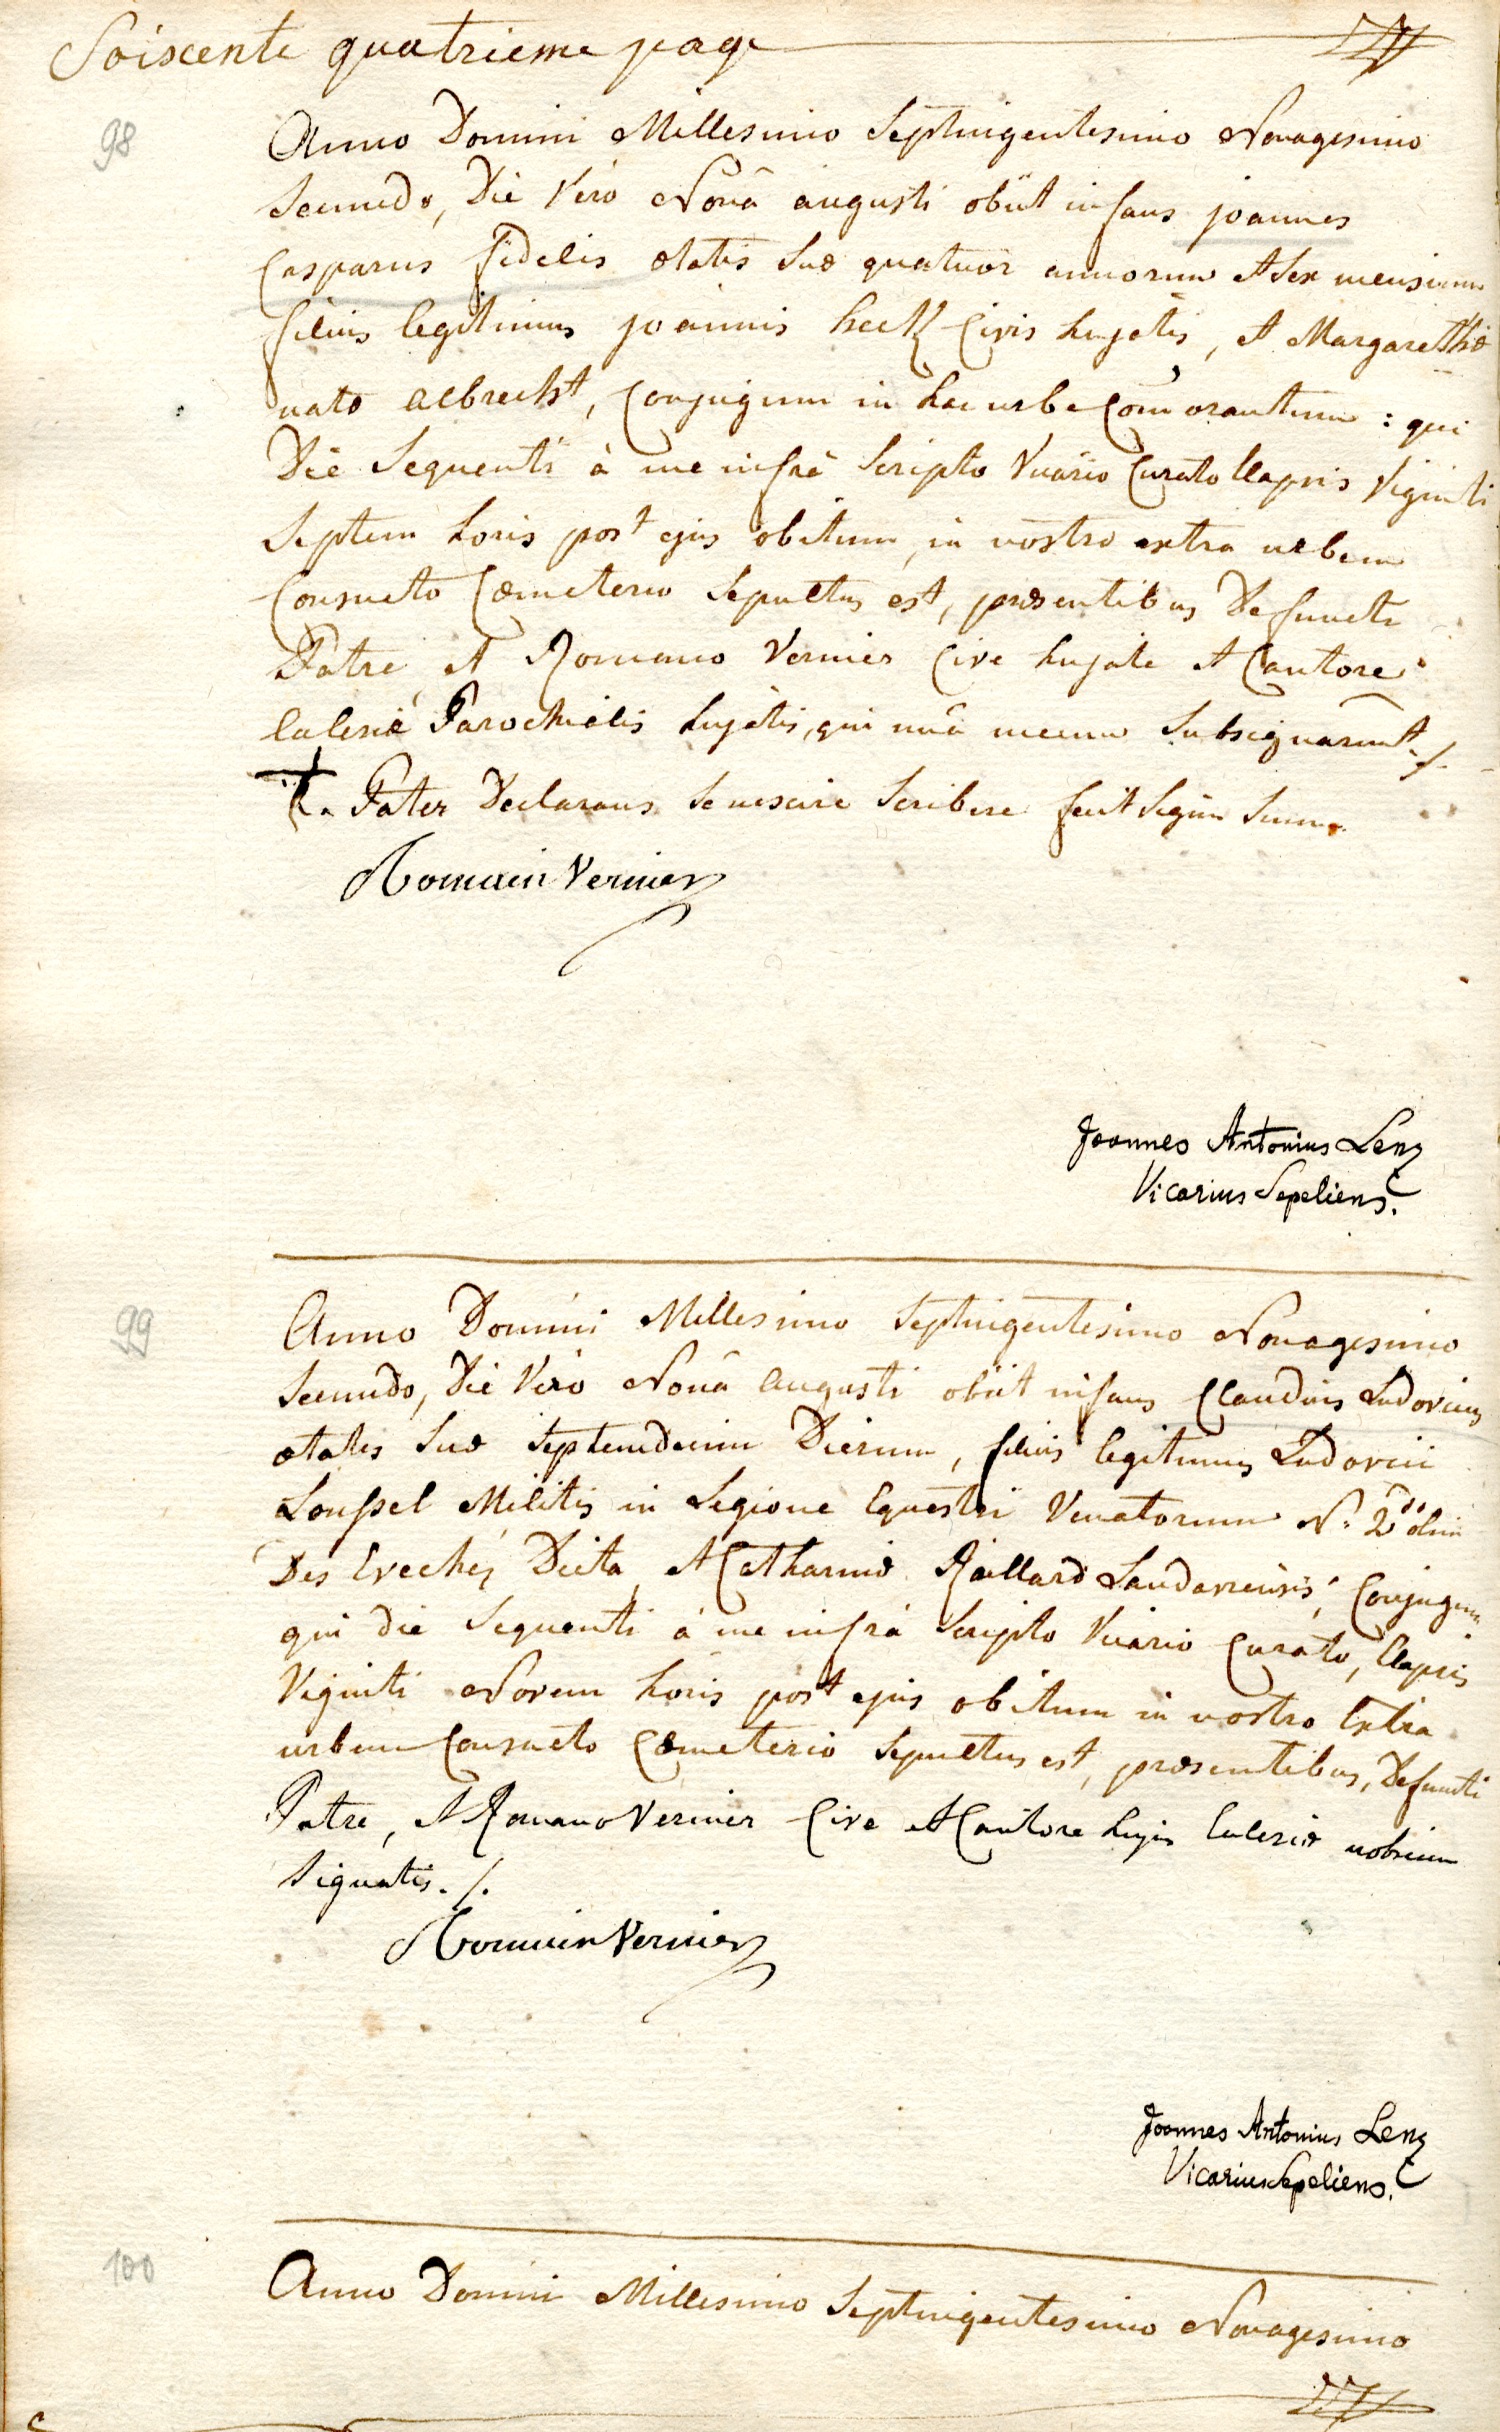 Soiscente quatrieme page
98
Anno Domini Millesimo Septingentesimo Nonagesimo
Secundo, Die Verò Nonâ augusti obiit infans joannes
Casparus fidelis ætatis suæ quatuor annorum et sex mensium
filius legitimus joannis heck Civis hujatis, et Margarethæ
natæ Albrecht, Conjugum in hac urbe Com̄orantium: qui
Die Sequenti à me infrà Scripto Vicario Curato Elapsis Viginti
Septem horis post ejus obitum, in nostro extra urbem
Consueto Cœmeterio Sepultus est, præsentibus Defuncti
Patre, et Romano Vernier Cive hujate et Cantore
Ecclesiæ Parochialis hujatis, qui unà mecum Subsignarunt ./.
Pater Declarans se nescire Scribere fecit Signum Suum.
Romain Vernier
Joannes Antonius Lenz
Vicarius Sepeliens.
99
Anno Domini Millesimo Septingentesimo Nonagesimo
Secundo, Die Verò Nonâ Augusti obiit infans Claudius Ludovicus
ætatis suæ Septemdecim Dierum, filius legitimus Ludovici
Loussel Militis in Legione Equestri Venatorum N.º 2.do olim
Des Evechés Dicta, et Catharinæ Raillard Landaviensis, Conjugum
qui die Sequenti à me infrà Scripto Vicario Curato, Elapsis
Viginti Novem horis post ejus obitum in nostro Extra
urbem Consueto Cœmeterio Sepultus est, præsentibus, Defuncti
Patre, et Romano Vernier Cive et Cantore hujus Ecclesiæ nobiscum
Signatis ./.
Romain Vernier
Joannes Antonius Lenz
Vicarius Sepeliens.
100
Anno Domini Millesimo Septingentesimo Nonagesimo